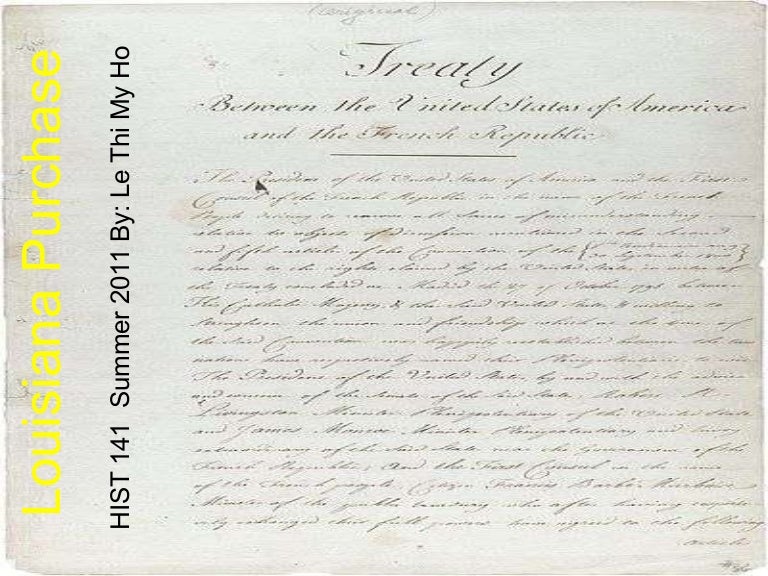 Louisiana Purchase
HIST 141 Summer 2011 By: Le Thi My Ho
(original)
Treaty
Between the United States of America
and the French Republic
The President of the United States of America and the First
Consul of the French Republic in the name of the French
People desiring to remove all Source of misunderstanding
relative to objects of discussion mentioned in the Second
and fifth articles of the Convention of the
30 September 1800
relative to the rights claimed by the United States in virtue of
the Treaty concluded at Madrid the 27 of October 1795 between
His Catholic Majesty & the Said United States, & willing to
Strengthen the union and friendship which at the time of
the Said Convention was happily reestablished between the two
nations have respectively named their Plenipotentiaries to wit
The President of the United States, by and with the advice
and consent of the Senate of the Said States, Robert R.
Livingston Minister Plenipotentiary of the United States
and James Monroe Minister Plenipotentiary and Envoy
extraordinary of the Said States near the Government of the
French Republic; And the First Consul in the name
of the French people, Citizen Francis Barbé Marbois
Minister of the public treasury who after having respectiv
ely exchanged their full powers have agreed to the following
Articles